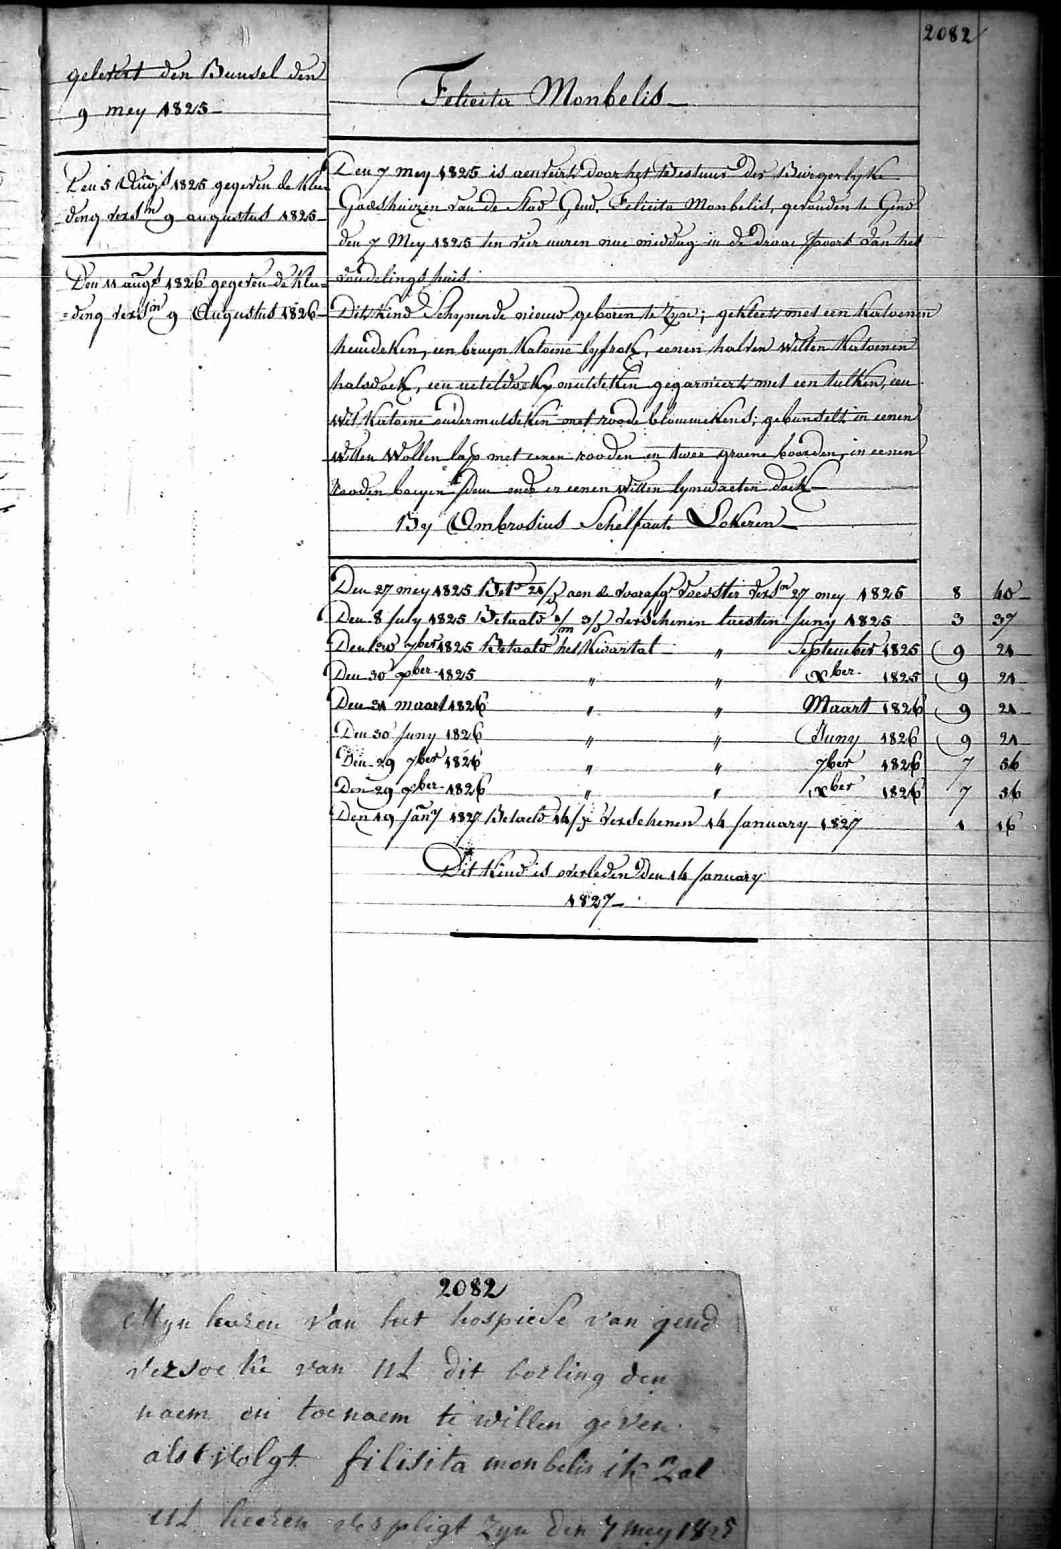 2082
gelevert den Bunsel den
9 mey 1825
Den 5 Augst 1825 gegeven de klee
ding versn 9 augustus 1825
Den 11 augst 1826 gegeven de klee=
=ding versn 9 Augustus 1826
Felicita Monbelis
Den 7 mey 1825 is aenveirt door het Bestuur der Burgerlyke
Godshuizen van de Stad Gend, Felicita Monbelis, gevonden te Gend
den 7 Mey 1825 ten vier uuren nae middag in de draei Poort van het
vondelings huis.
Dit kind Schynende nieuw geboren te Zyn; gekleet met een Katoenen
hemdeken, een bruyn Katoene lyfrok, eenen halven witten Katoenen
halsdoek, een neteldoeks mutseken gegarniert met een tulken, een
wit Katoene ondermutseken met roode blommekens; gebunselt in eenen
witten Wollen lap met eenen rooden en twee groene boorden, in eenen
Rooden baeyen idem ende in eenen witten lynwaeten doek
By Ambrosius Schelfaut Lokeren
Den 27 mey 1825 Bete 21/d aen de voorafge voedster versn 27 mey 1825 8 40
Den 8 July 1825 Betaald 1/m 3/d verschenen laesten Juny 1825 3 37
Den 30 7ber 1825 Betaald het Kwartal " September 1825 9 21
Den 30 xber 1825 " " xber 1825 9 21
Den 31 maart 1826 " " Maart 1826 9 21
Den 30 Juny 1826 " " Juny 1826 9 21
Den 29 7ber 1826 " " 7ber 1826 7 56
Den 29 xber 1826 " " xber 1826 7 56
Den 19 Jany 1827 Betaeld 14/d verschenen 14 January 1827 1 16
Dit Kind is overleden Den 14 January
1827
2082
Myn heeren van het hospiese van gend
versoeke van UL dit borling den
naem en toenaem te willen geven
als volgt filisita monbelis ik Zal
UL heeren verpligt Zyn den 7 mey 1825